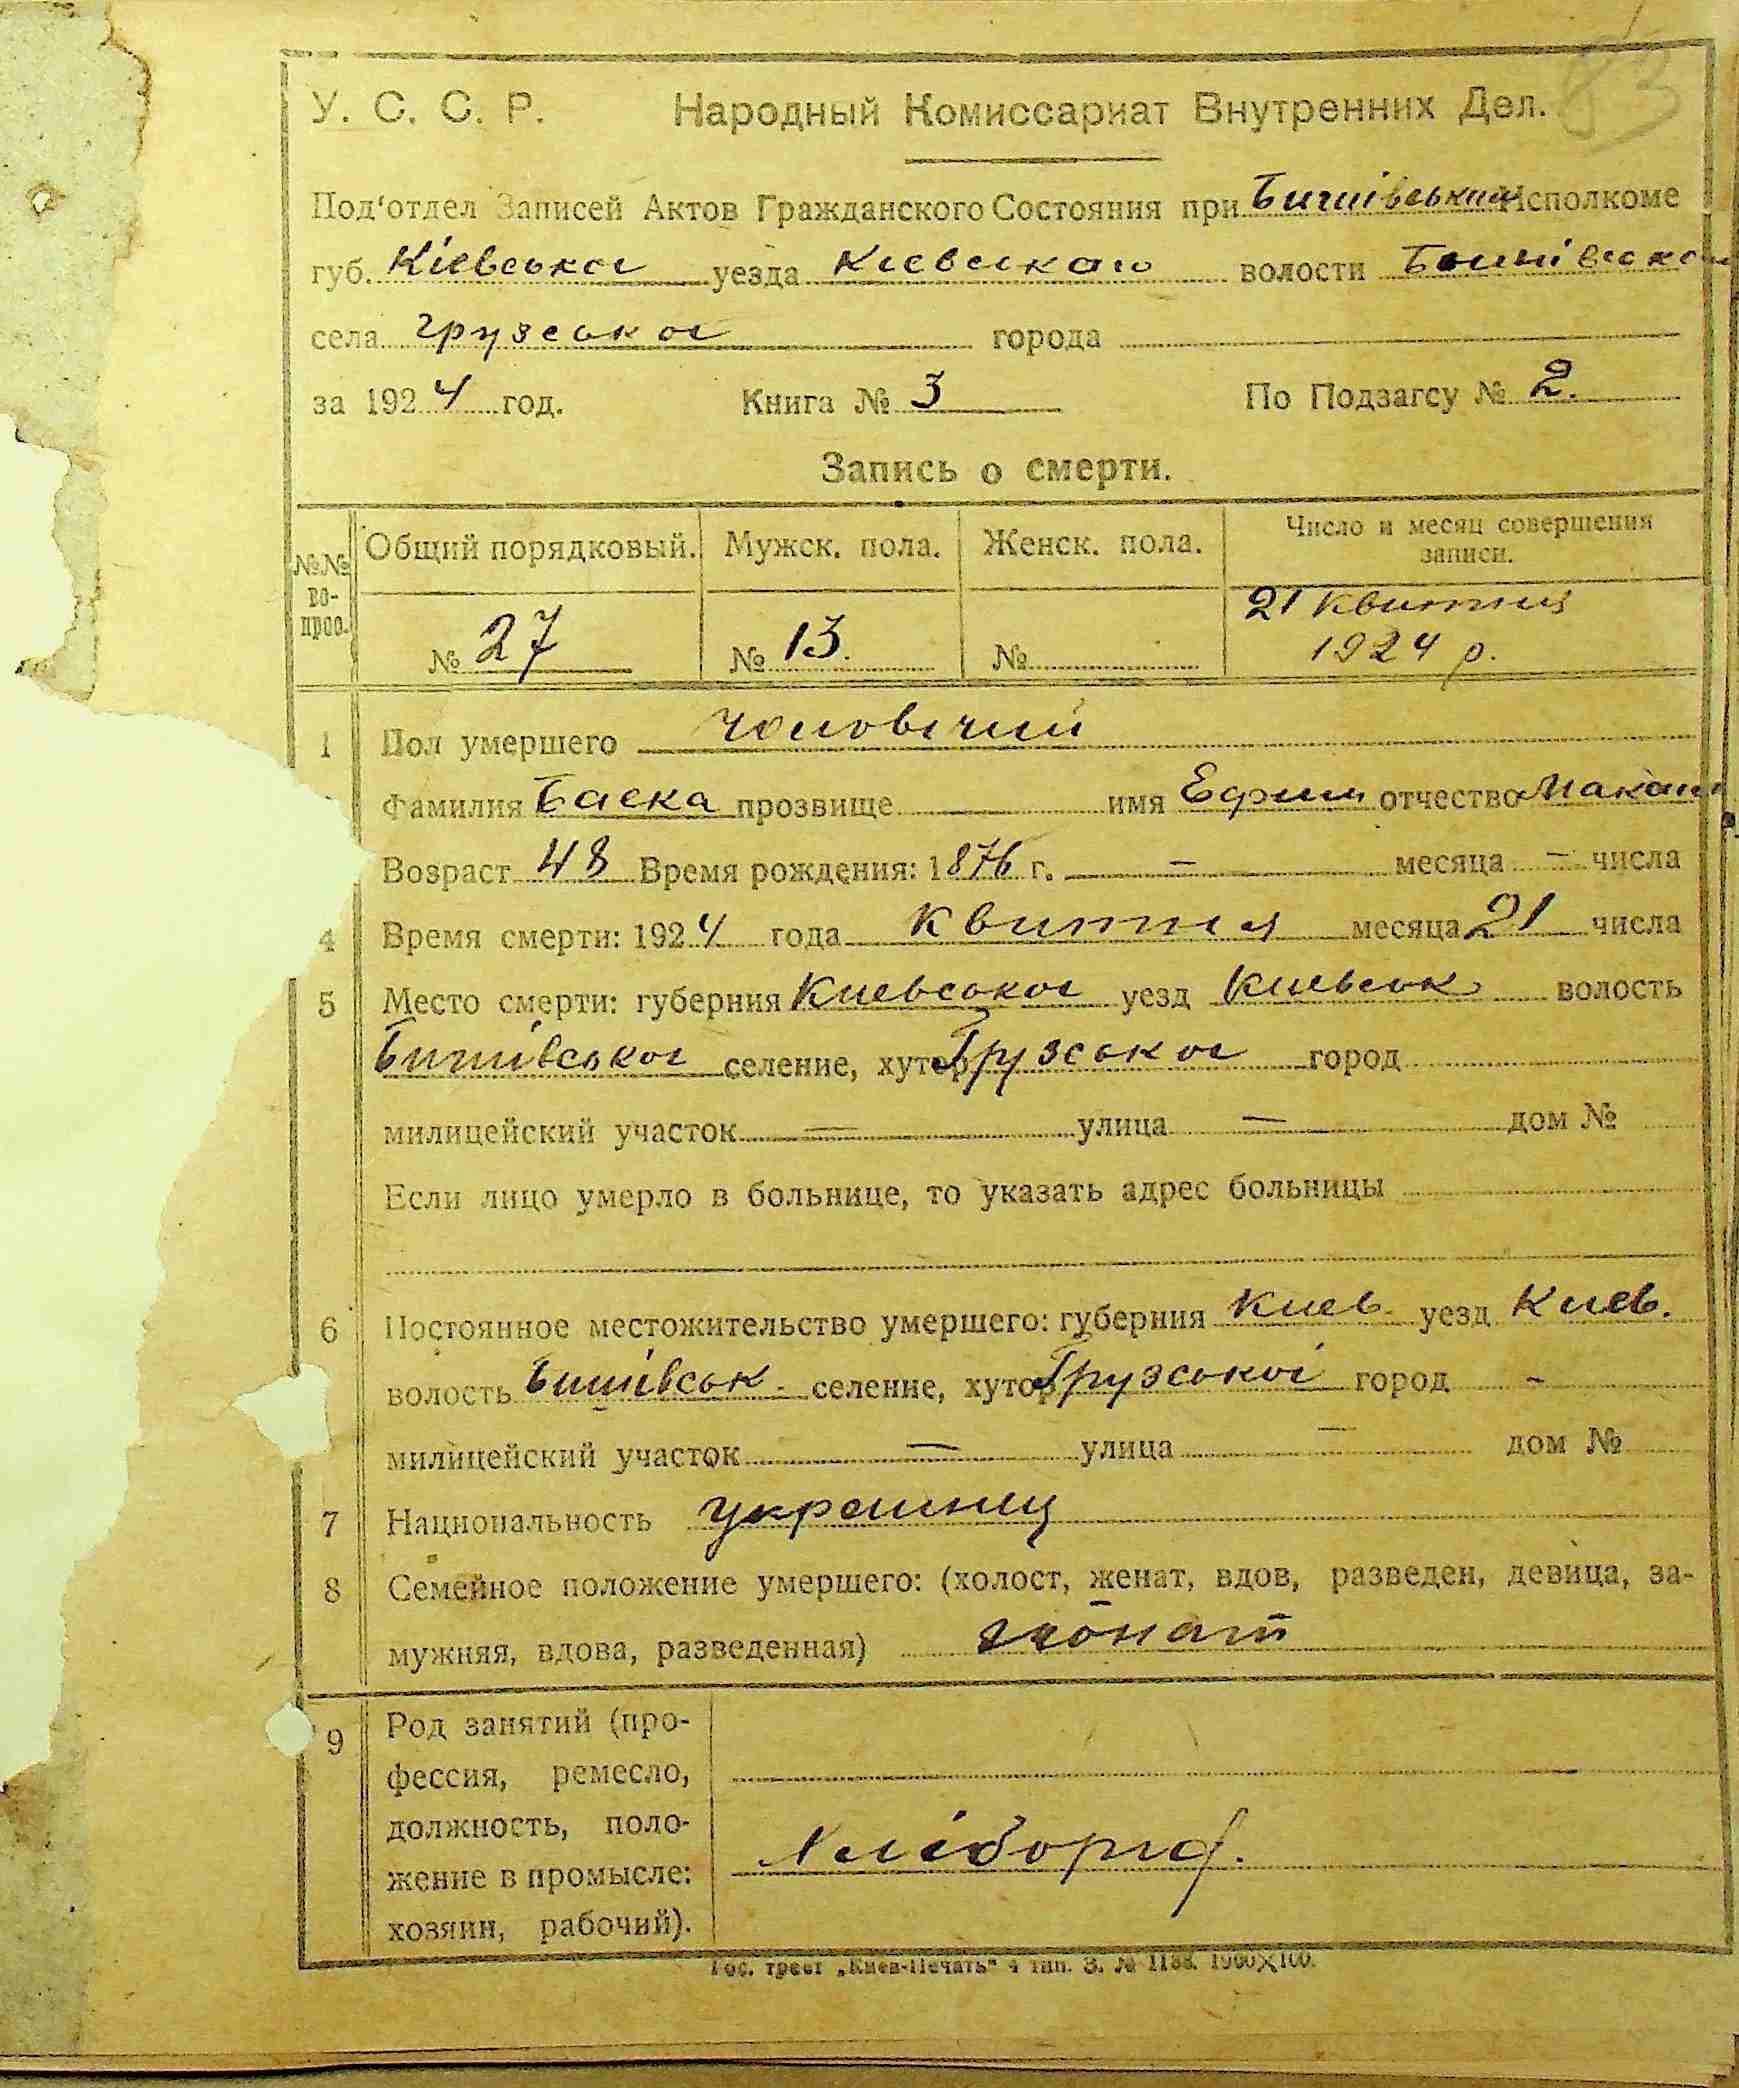 83
У. С. С. Р. Народный Комиссариат Внутренних Дел.
Под'отдел Записей Актов Гражданского Состояния при Бишівським Исполкоме
губ. Кіевської уезда Киевского волости Бишівской
села Грузської города
за 1924 год. Книга № 3 По Подзагсу № 2.
Запись о смерти.
№№ во- прос. Общий порядковый. Мужск. пола. Женск. пола. Число и месяц совершения записи.
№ 27 № 13. № 21 Квитня 1924 р.
1 Пол умершего чоловічий
Фамилия Баека прозвище имя Ефим отчество Макаш
Возраст 48 Время рождения: 1876 г. – месяца – числа
4 Время смерти: 1924 года Квитня месяца 21 числа
5 Место смерти: губерния Киевської уезд Киевськ волость
Бишівської селение, хутор Грузської город
милицейский участок — улица — дом №
Если лицо умерло в больнице, то указать адрес больницы
6 Постоянное местожительство умершего: губерния Киев. уезд Киев.
волость Бишівськ. селение, хутор Грузської город -
милицейский участок — улица — дом №
7 Национальность украинец
8 Семейное положение умершего: (холост, женат, вдов, разведен, девица, за-
мужняя, вдова, разведенная) жонат
9 Род занятий (про-
фессия, ремесло,
должность, поло-
жение в промысле:
хозяин, рабочий).
Хлібороб.
Гос. трест „Киев-Печать" 4 тип. З. № 1188. 1000×100.